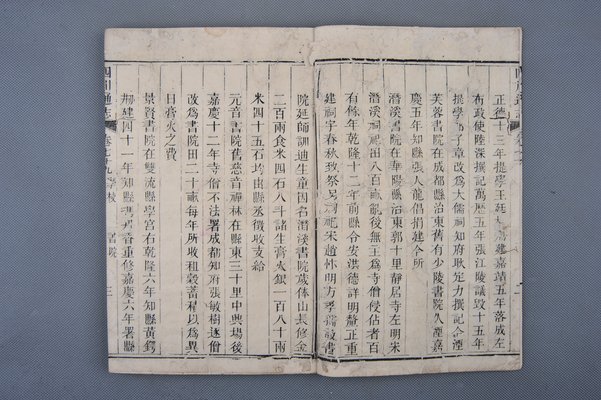 正德十三年提學王廷建嘉靖五年落成左
布政使陸深撰記萬歷五年張江陵議毀十五年
提學子章改爲大儒祠知府耿定力撰記合湮
芙蓉書院在成都縣治東舊有少陵書院久湮嘉
慶五年知縣張人龍倡捐建今所
潛溪書院在華陽縣治東郭十里靜居寺左明宋
潛溪祠祠田八百畝祀後無王爲寺僧侵佔者百
有餘年乾隆十二年前縣令安洪德詳明釐正重
建祠宇春秋致祭另祠祀宋趙忭明方孝孺設書
院延師訓迪生童因名潛溪書院歲俸山長修金
二百兩食米四石八斗諸生膏火銀一百八十兩
米四十五石均由縣丞徵收支給
元音書院舊慈音禪林在縣東三十里中興場後
嘉慶十二年寺僧不法署成都知府張敏樹逐僧
改爲書院田二十畝每年所收租穀蓄積以爲異
日膏火之費
景賢書院在雙流縣學宮右乾隆六年知縣黃鍔
捌建四十一年知縣重修嘉慶六年署縣
四川通志
卷七十九學校
書院
三